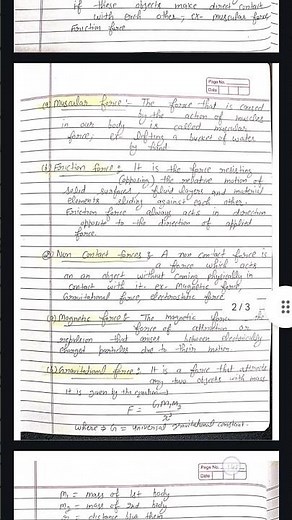 if these objects make direct contact
with each other, ex- muscular force,
Friction force.
Page No.
Date
(a) Muscular force :- The force that is caused
by the action of muscles
in our body is called muscular
force; ex- lifting a bucket of water
by
(b) Friction force : It is the force resisting
(opposing) the relative motion of
solid surfaces, fluid layers and material
elements sliding against each other.
Friction force always acts in direction
opposite to the direction of applied
force.
Non Contact forces : A non contact force is
a force which acts
on an object without coming physically in
contact with it. ex. Magnetic force,
Gravitational force, electrostatic force
2/3
(a) Magnetic force : The magnetic force
force of attraction or
repulsion that arises between electrically
charged particles due to their motion.
(b) Gravitational force : It is a force that attracts
any two objects with mass
It is given by the equation
F = G m1 m2
r²
where → G = universal gravitational constant.
Page No.
Date
m1 = mass of 1st body
m2 = mass of 2nd body
distance b/w them